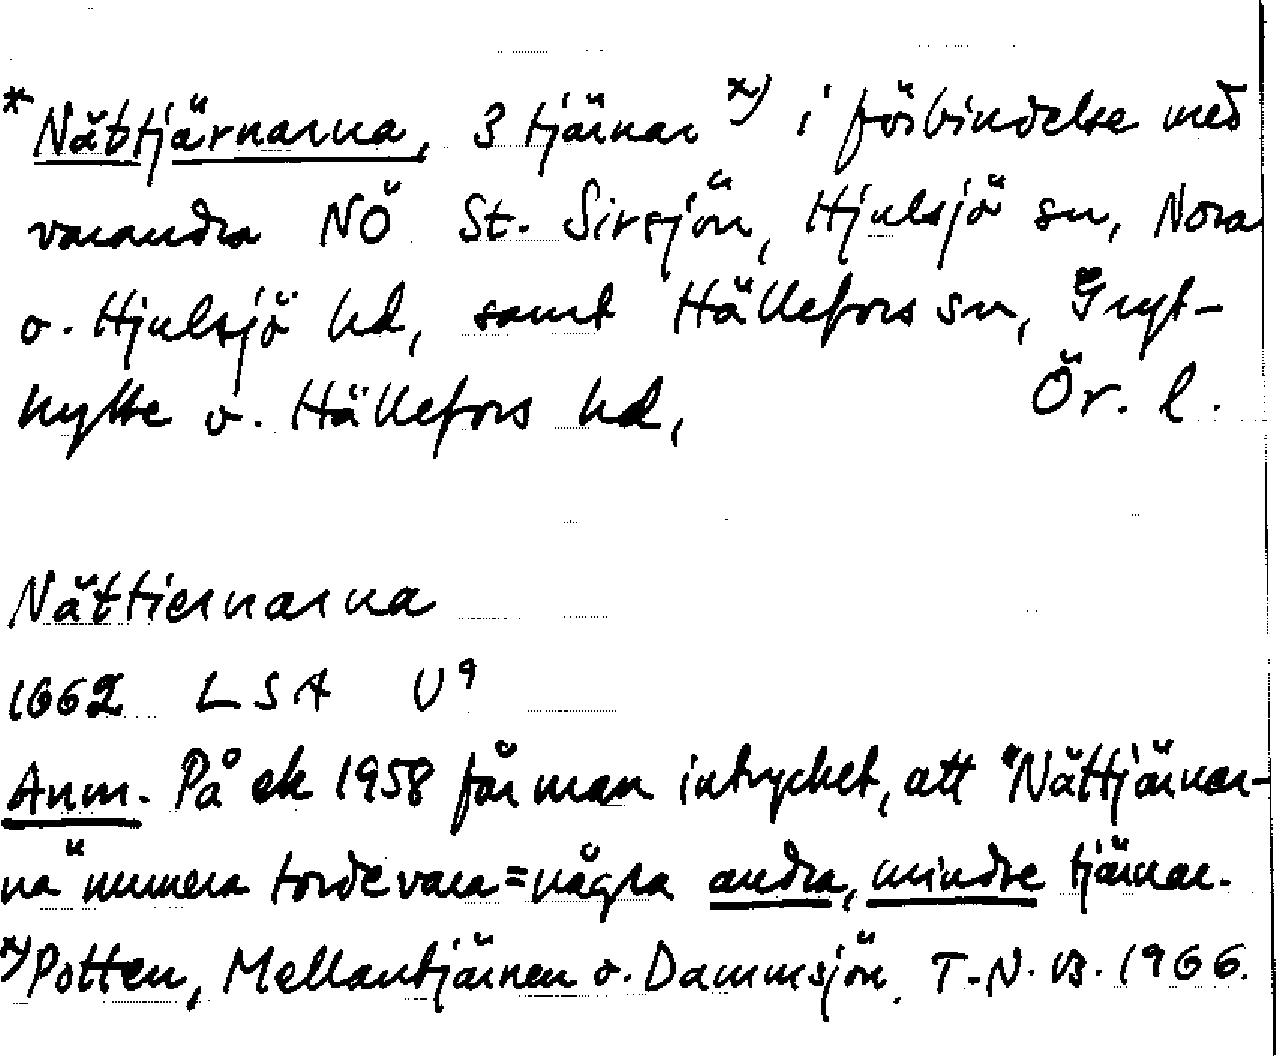 *Nättjärnarna, 3 tjärnar x) i förbindelse med
varandra NÖ St. Sirsjön, Hjulsjö sn, Nora
o. Hjulsjö hd, samt Hällefors sn, Gryt-
hytte o. Hällefors hd, Ör. l.
Nättiernarna
1662 LSA U9
Anm. På ek 1958 får man intrycket, att "Nättjärnar-
na" numera torde vara = några andra, mindre tjärnar.
x) Potten, Mellantjärnen o. Dammsjön. T.N.B. 1966.